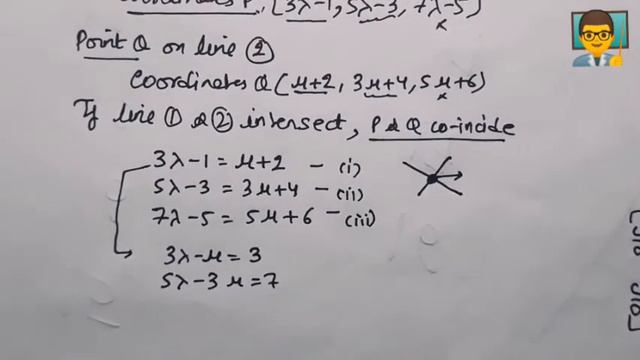 Coordinates P, (3λ-1, 5λ-3, 7λ-5)
Point Q on line ②
Coordinates Q (μ+2, 3μ+4, 5μ+6)
If line ① & ② intersect, P & Q co-incide
3λ-1 = μ+2 - (i)
5λ-3 = 3μ+4 - (ii)
7λ-5 = 5μ+6 - (iii)
3λ-μ = 3
5λ-3μ = 7